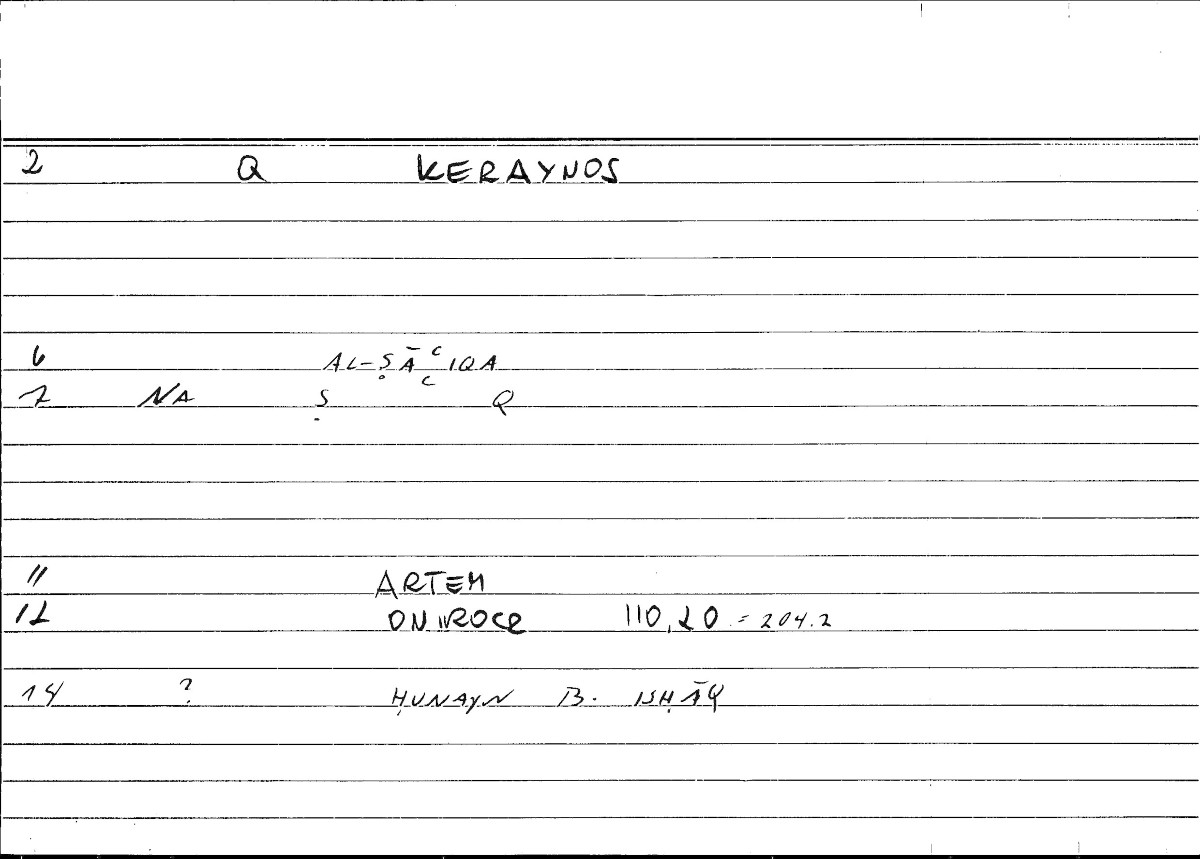 2 Q KERAYNOS
6 AL-ṢĀʿIQA
7 NA Ṣ ʿ Q
11 ARTEM
12 ONIROCR 110,20 = 204.2
14 ? ḤUNAYN B. ISḤĀQ